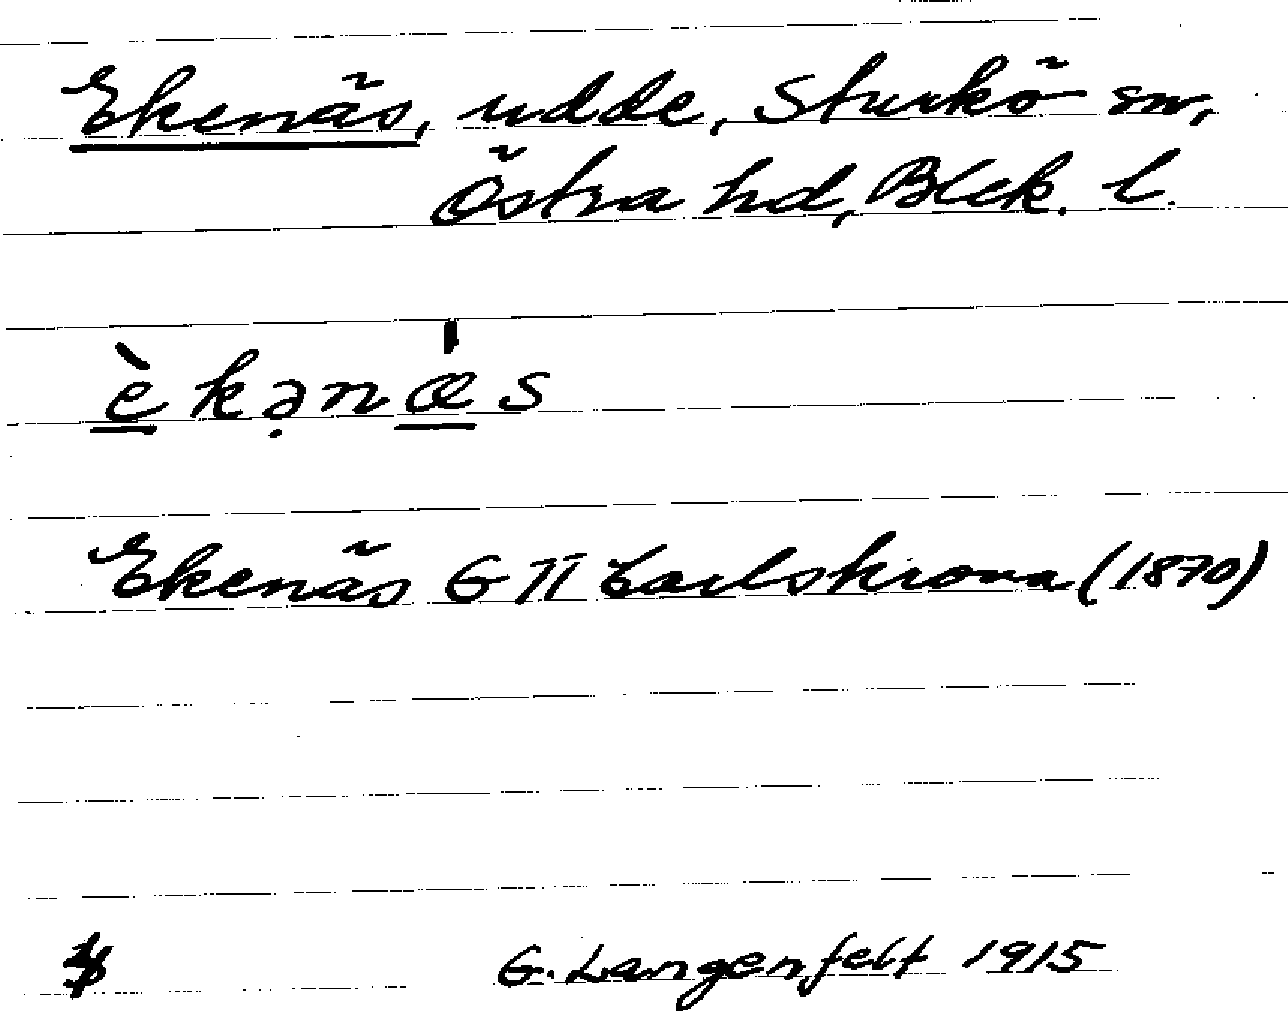 Ekenäs, udde, Sturkö sn,
Östra hd, Blek. l.
èkənæ̍s
Ekenäs G II Carlskrona (1870)
G. Langenfelt 1915